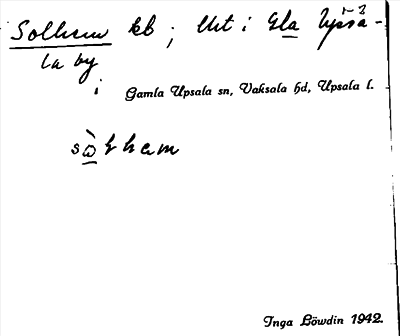 Solhem kb ; Utt i Gla Upsa-
la by
i Gamla Upsala sn, Vaksala hd, Upsala l.
Inga Löwdin 1942.